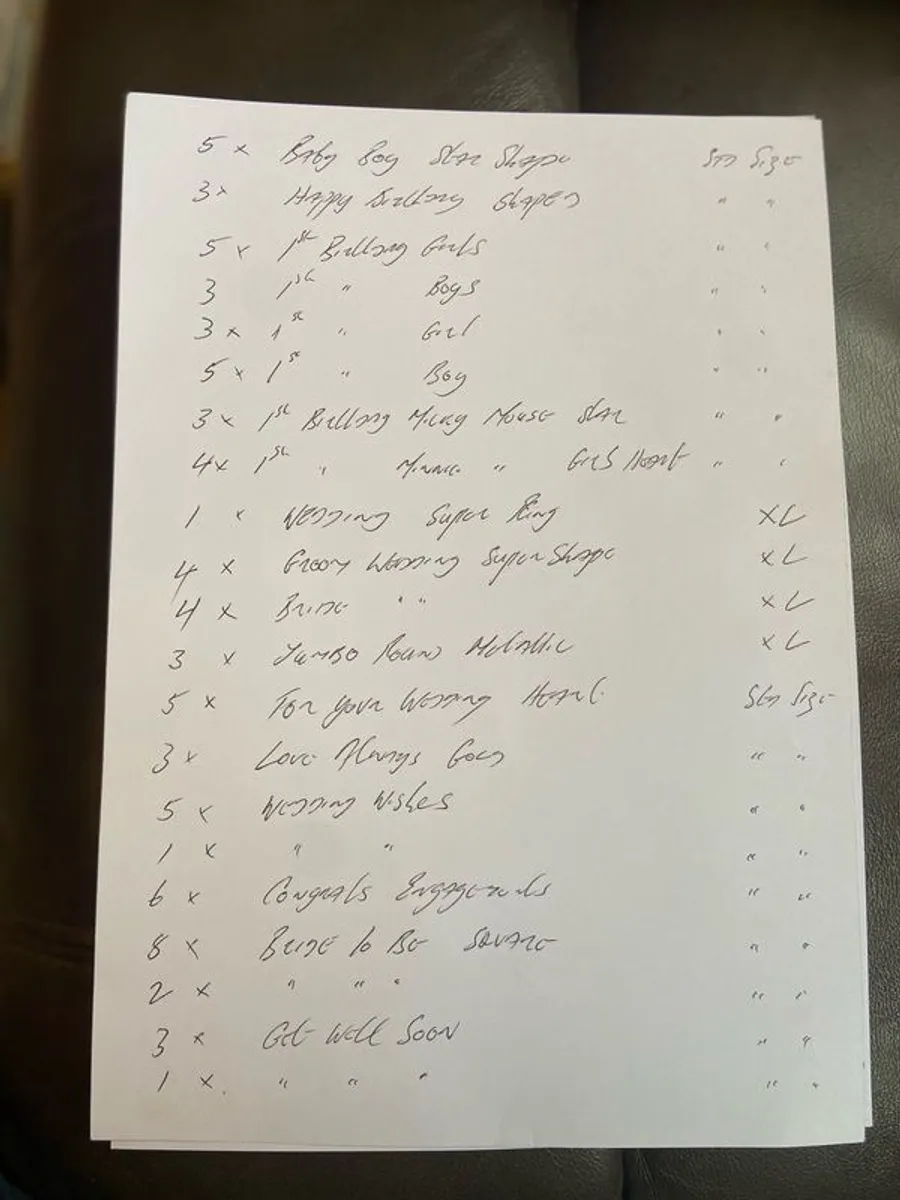 5 x Baby Boy Star Shape Std Size
3x Happy Birthday Shaped " "
5 x 1st Birthday Girls " "
3 1st " Boys " "
3 x 1st " Girl " "
5 x 1st " Boy " "
3 x 1st Birthday Micky Mouse Star " "
4x 1st " Minnie " Girls Heart " "
1 x Wedding Super Ring XL
4 x Groom Wedding Super Shape XL
4 x Bride " " XL
3 x Jumbo Round Metallic XL
5 x For your Wedding Heart Std Size
3 x Love Always " "
5 x Wedding Wishes " "
1 x " " " "
6 x Congrats Engagements " "
8 x Bride to Be Square " "
2 x " " " " "
3 x Get Well Soon " "
1 x " " " " "